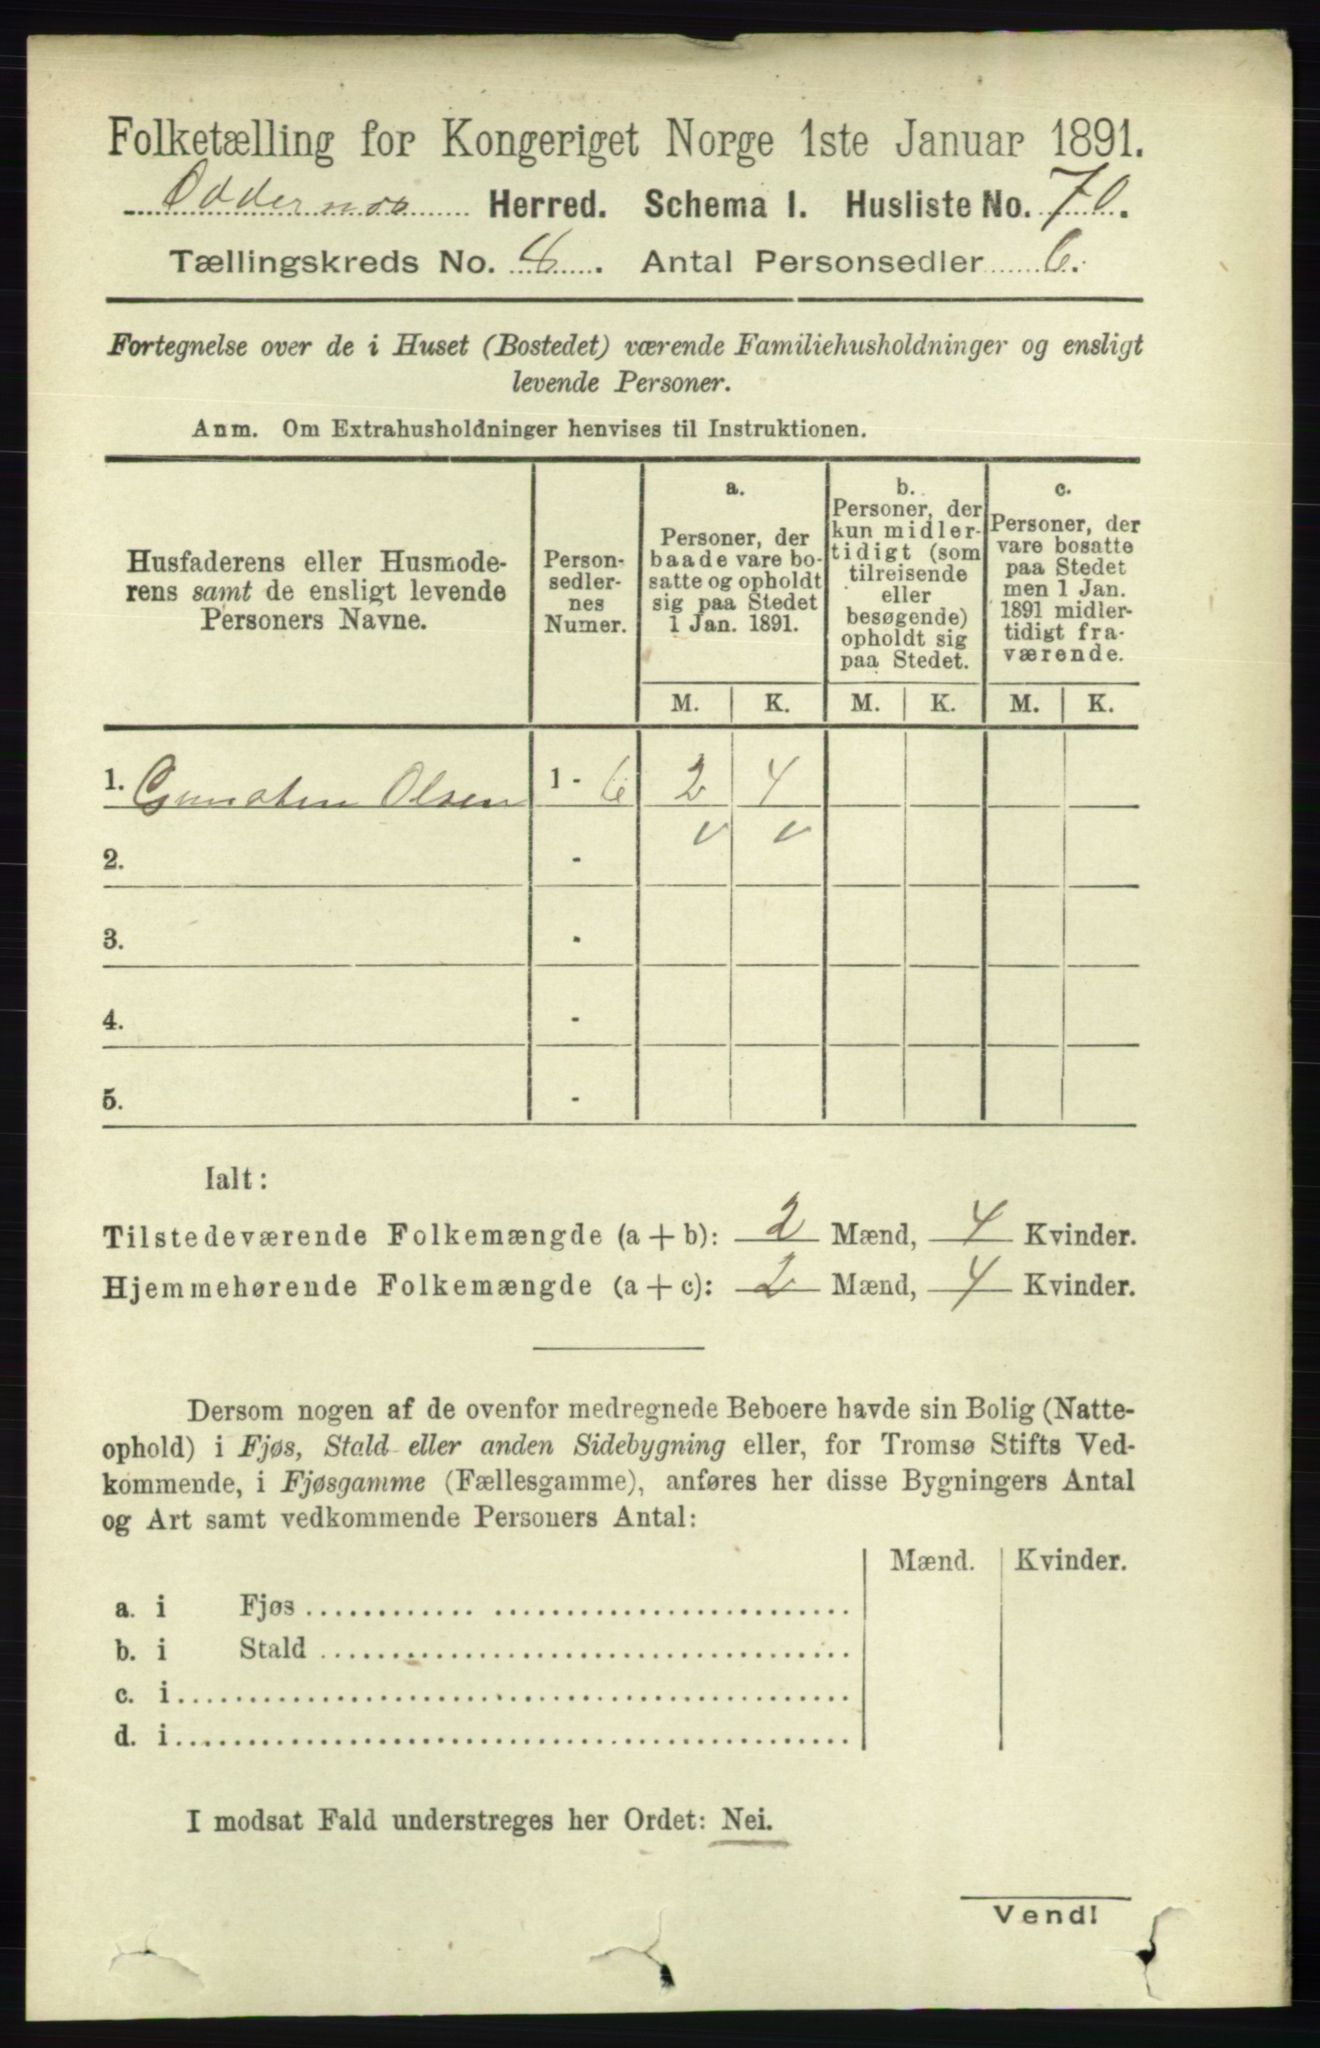 Folketælling for Kongeriget Norge 1ste Januar 1891.
Oddernes Herred. Schema I. Husliste No. 70.
Tællingskreds No. 8. Antal Personsedler 6.
Fortegnelse over de i Huset (Bostedet) værende Familiehusholdninger og ensligt
levende Personer.
Anm. Om Extrahusholdninger henvises til Instruktionen.
Husfaderens eller Husmode-
rens samt de ensligt levende
Personers Navne.
Person-
sedler-
nes
Numer.
a.
Personer, der
baade vare bo-
satte og opholdt
sig paa Stedet
1 Jan. 1891.
b.
Personer, der
kun midler-
tidigt (som
tilreisende
eller
besøgende)
opholdt sig
paa Stedet.
c.
Personer, der
vare bosatte
paa Stedet
men 1 Jan.
1891 midler-
tidigt fra-
værende.
M. K. M. K. M. K.
1. Olsen 1 - 6 2 4
2. -
3. -
4. -
5. -
Ialt:
Tilstedeværende Folkemængde (a + b): 2 Mænd, 4 Kvinder.
Hjemmehørende Folkemængde (a + c): 2 Mænd, 4 Kvinder.
Dersom nogen af de ovenfor medregnede Beboere havde sin Bolig (Natte-
ophold) i Fjøs, Stald eller anden Sidebygning eller, for Tromsø Stifts Ved-
kommende, i Fjøsgamme (Fællesgamme), anføres her disse Bygningers Antal
og Art samt vedkommende Personers Antal:
Mænd. Kvinder.
a. i Fjøs
b. i Stald
c. i
d. i
I modsat Fald understreges her Ordet: Nei.
Vend!